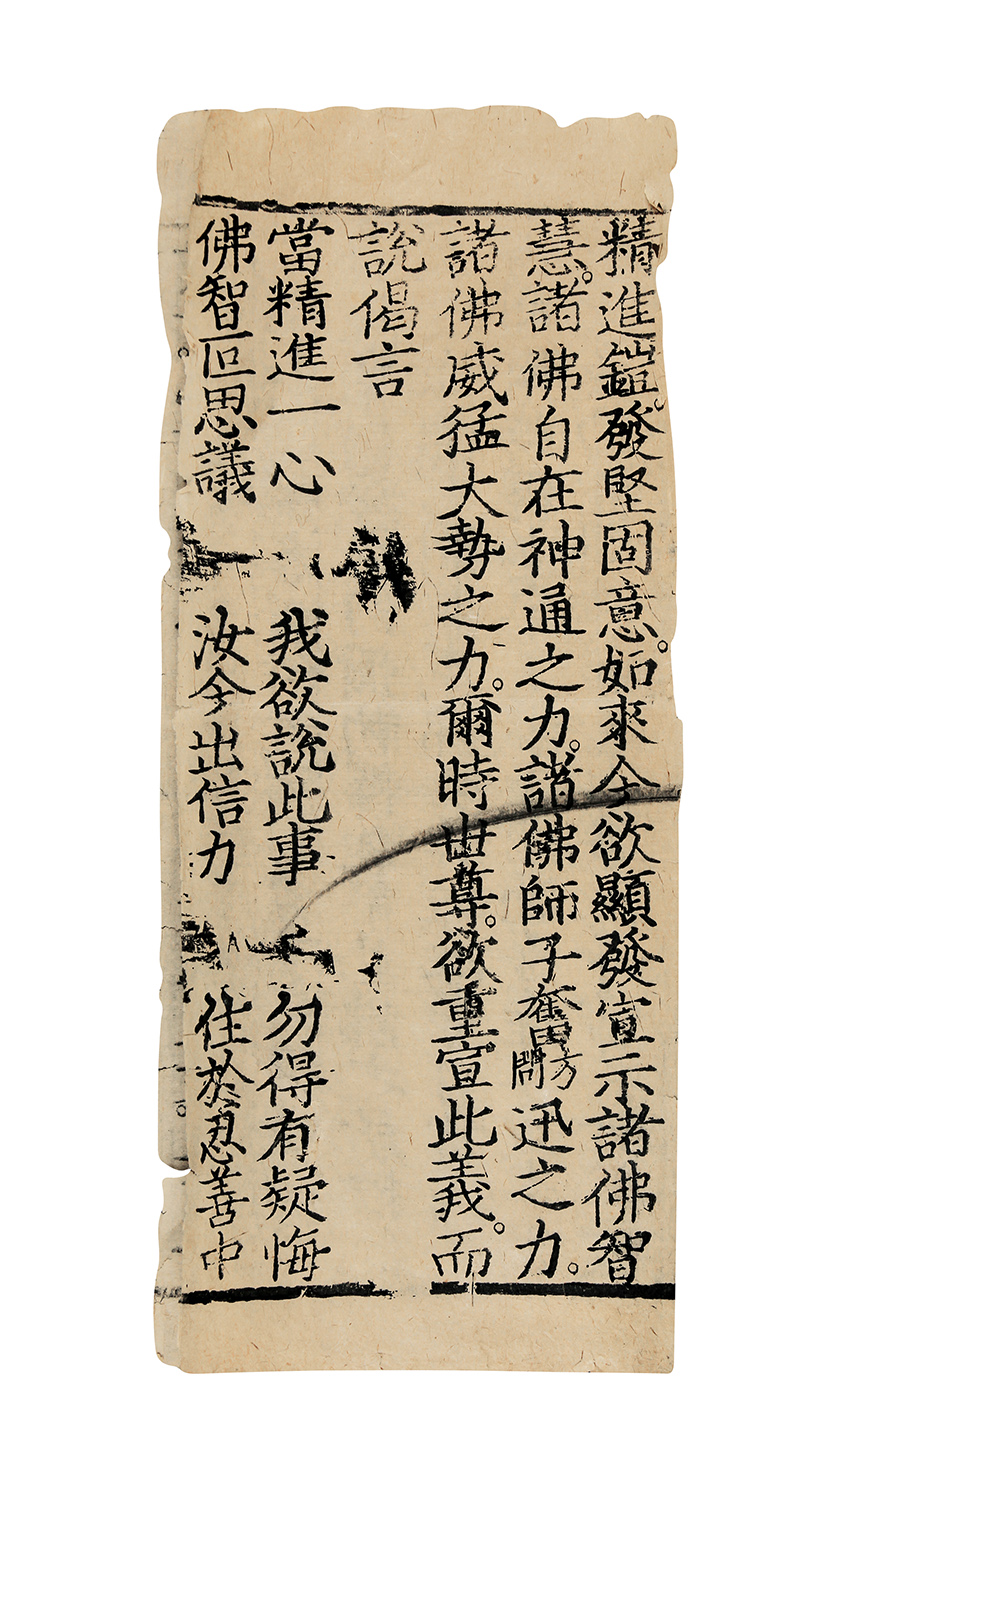 精進鎧。發堅固意。如來今欲顯發宣示諸佛智
慧。諸佛自在神通之力。諸佛師子奮方問迅之力。
諸佛威猛大勢之力。爾時世尊。欲重宣此義。而
說偈言
當精進一心　我欲說此事　勿得有疑悔
佛智叵思議　汝今出信力　住於忍善中